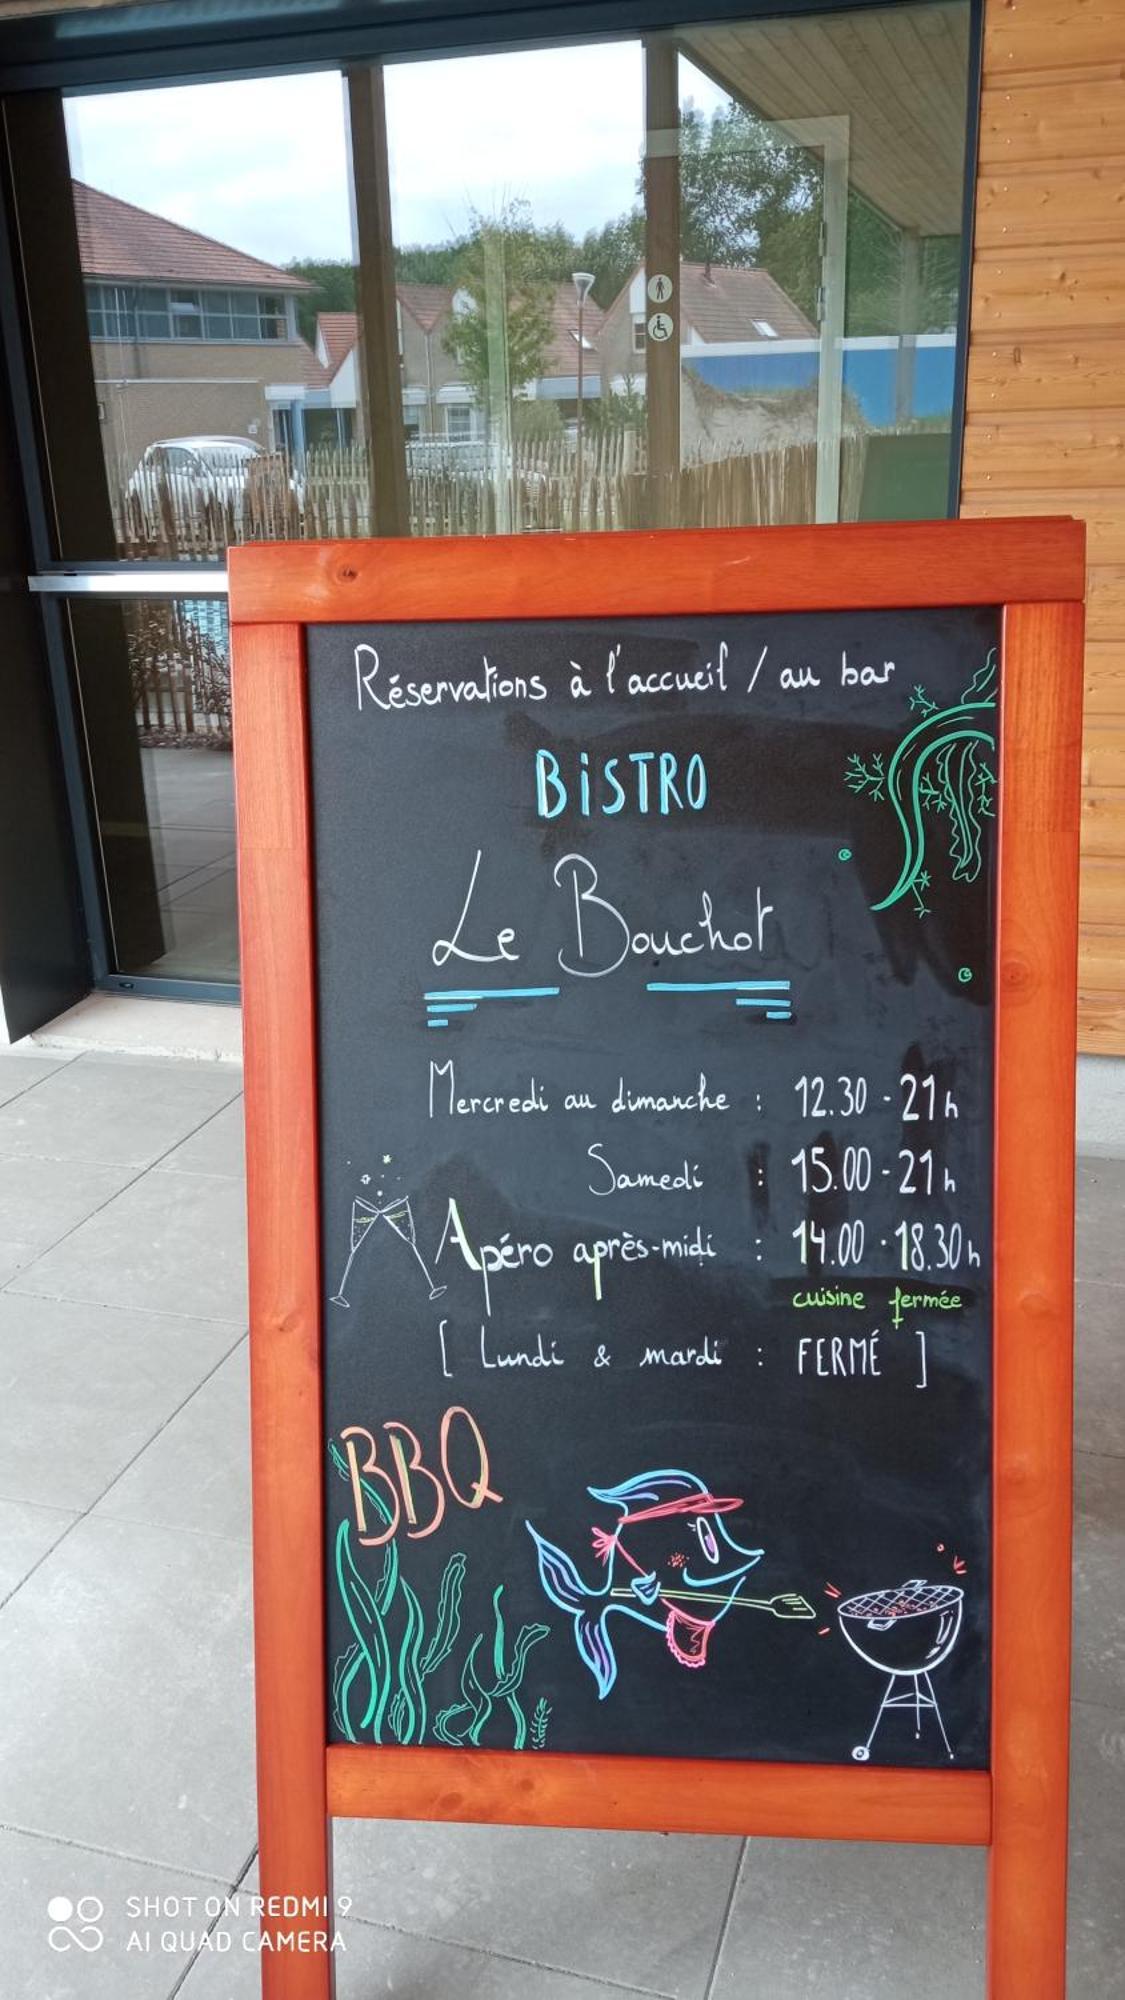 Réservations à l'accueil / au bar
BiSTRO
Le Bouchot
Mercredi au dimanche : 12.30 - 21h
Samedi : 15.00 - 21h
Apéro après-midi : 14.00 - 18.30h
cuisine fermée
[ Lundi & mardi : FERMÉ ]
BBQ
SHOT ON REDMI 9
AI QUAD CAMERA